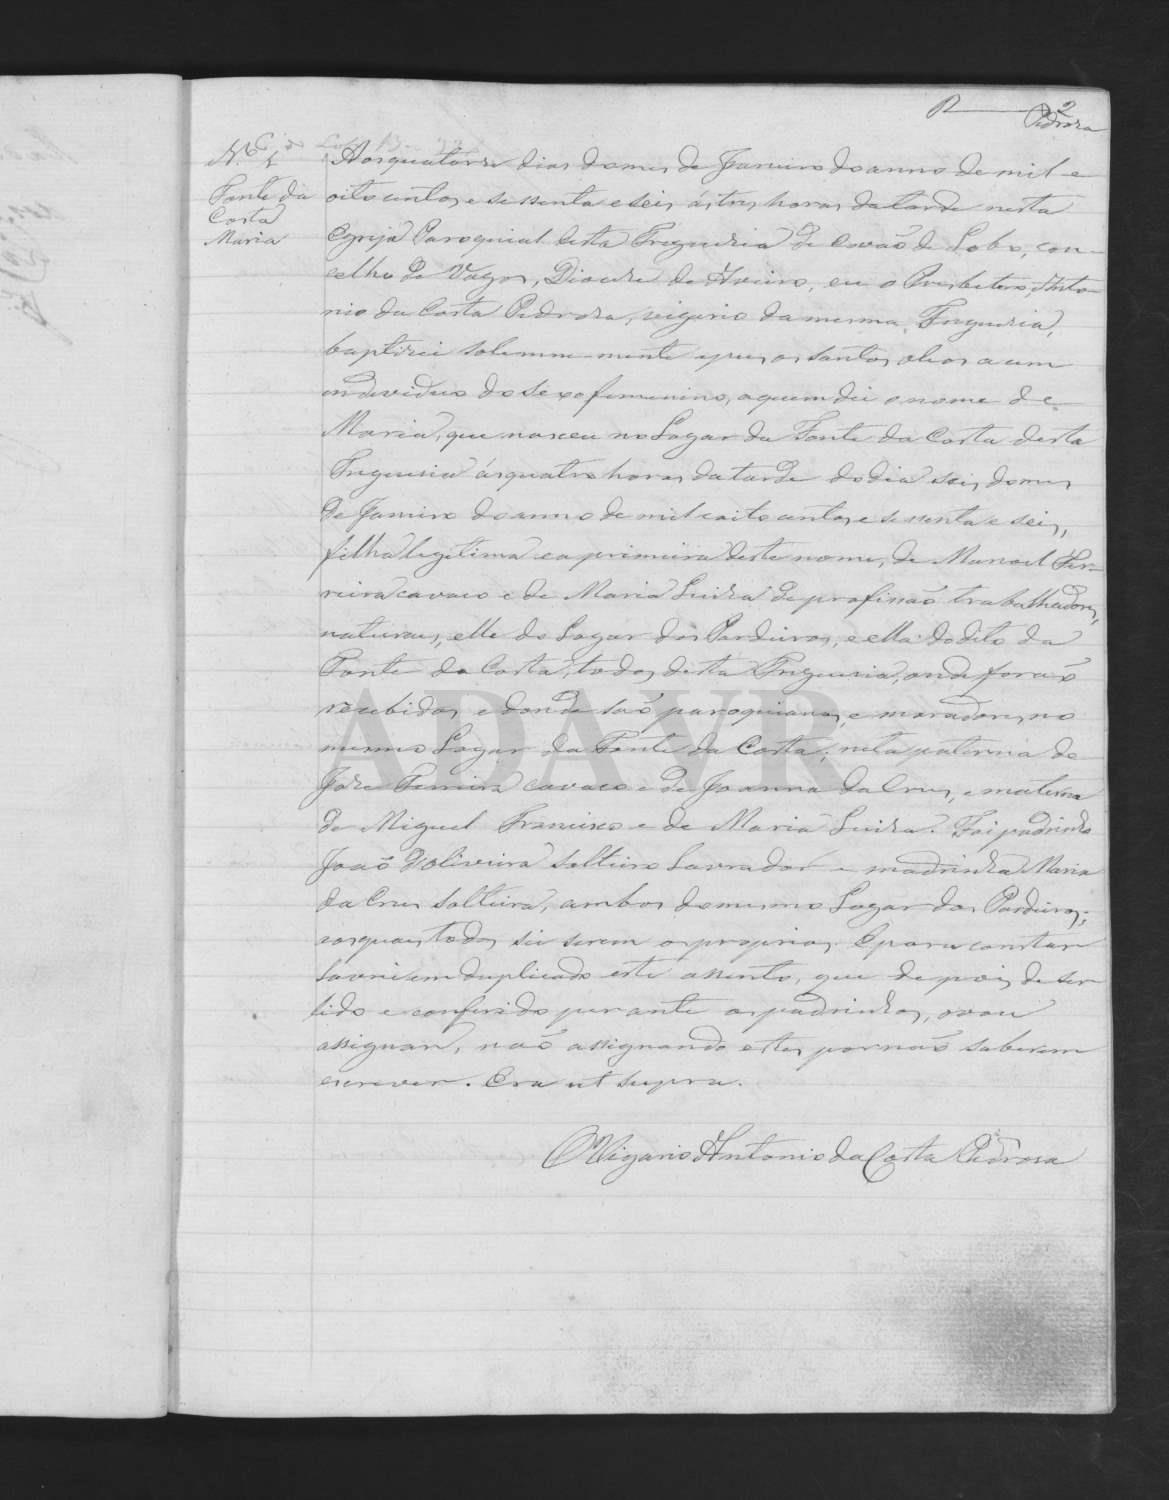 R 2
Pedrosa
N.º 1
Fonte da
Costa
Maria
Aos quatorze dias do mes de Janeiro do anno de mil e
oito centos e sessenta e seis ás tres horas da tarde nesta
Egreja Paroquial desta Freguezia de Covão de Lobo, con-
celho de Vagos, Diocese de Aveiro, eu o Presbetero, Anto-
nio da Costa Pedrosa, vigario da mesma Freguezia,
baptizei solemnemente e puz os santos oleos a um
individuo do sexo femenino, a quem dei o nome de
Maria, que nasceu no Lugar da Fonte da Costa desta
Freguesia ás quatro horas da tarde do dia seis do mes
de Janeiro do anno de mil e oito centos e sessenta e seis,
filha legitima e a primeira deste nome, de Manoel Fer-
reira cavaco e de Maria Luiza de profissaõ trabalhadores,
naturaes, elle do Lugar dos Pardieiros, e ella do dito da
Fonte da Costa, todos desta Freguesia, onde foraõ
recebidos e donde saõ paroquianos, e moradores no
mesmo Lugar da Fonte da Costa; neta paterna de
Joze Ferreira cavaco e de Joanna da Cruz, e materna
de Miguel Francisco e de Maria Luiza. Foi padrinho
Joaõ d'Oliveira solteiro Lavrador e madrinha Maria
da Cruz solteira, ambos do mesmo Lugar dos Pardieiros;
os quaes todos sei serem os proprios. E para constar
lavrei em duplicado este assento, que depois de ser
lido e conferido perante os padrinhos, o vou
assignar, naõ assignando estes por naõ saberem
escrever. Era ut supra.
O Vigario Antonio da Costa Pedrosa
ADAVR